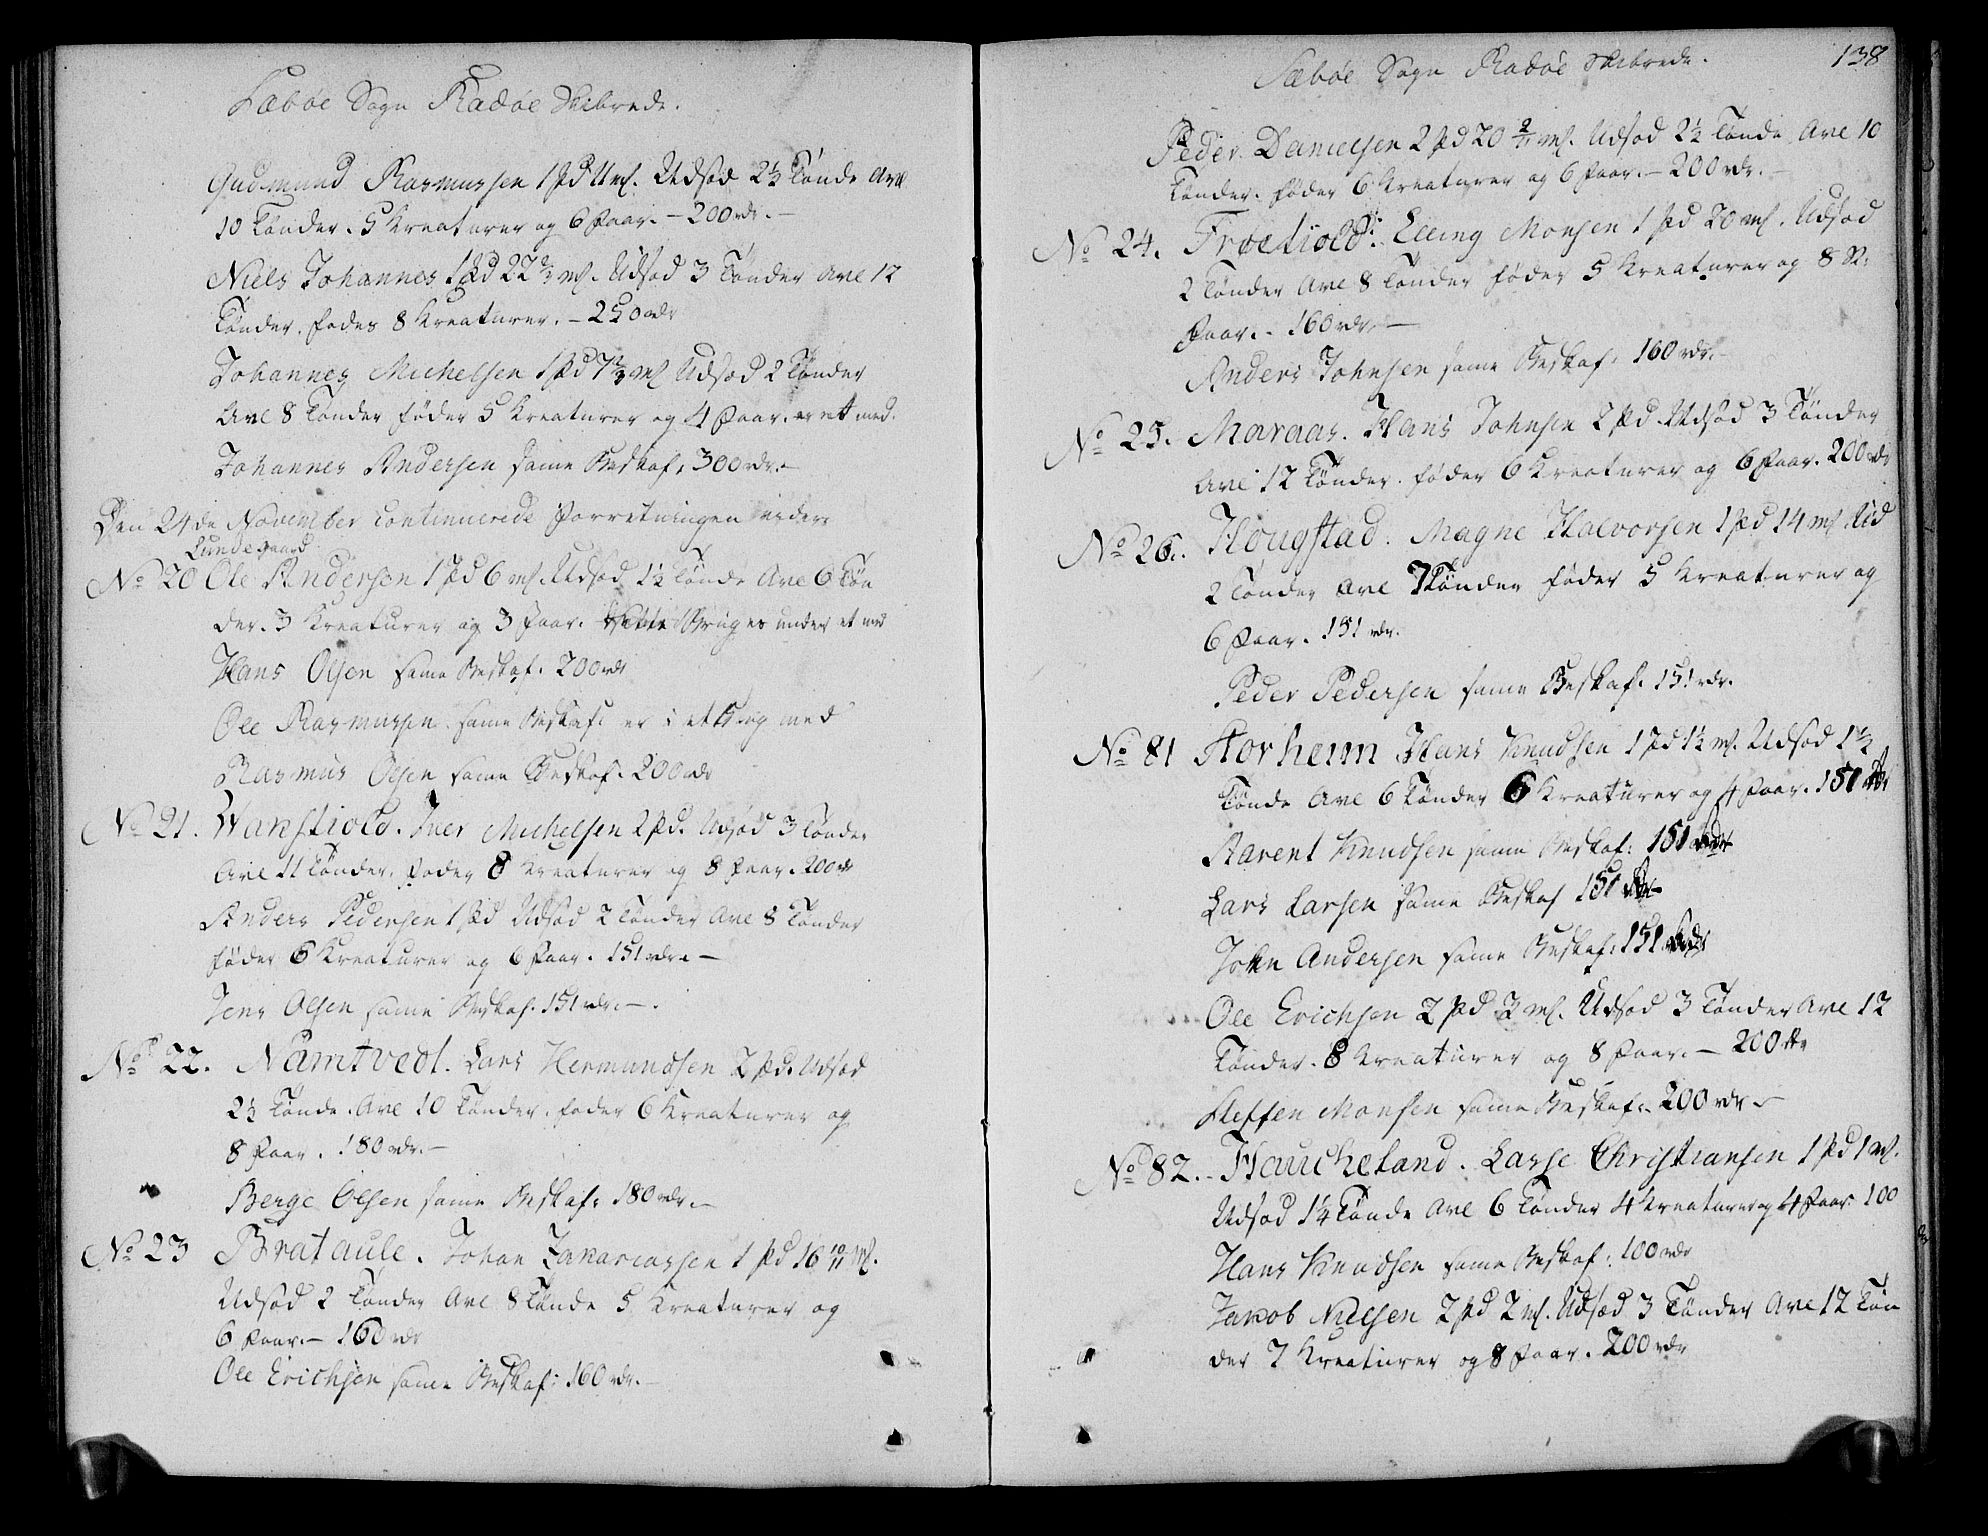 Sæbøe Sogn Radøe Skibrede.
Gudmund Rasmussen 1 pd 11 mk. Udsæd 2½ Tønde Avl
10 Tønder. 5 Kreaturer og 6 Faar. – 200 rdr. –
Niels Johannes 1 pd 22 mk. Udsæd 3 Tønder Avl 12
Tønder. føder 8 Kreaturer. – 250 rdr
Johannes Michelsen 1 pd 7 mk Udsæd 2 Tønder
Avl 8 Tønder føder 5 Kreaturer og 4 Faar. er et med.
Johannes Andersen same Beskaf: 300 rdr. –
Den 24de November Continuerede Forretningen videre
Lundegaard
No 20 Ole Andersen 1 pd 6 mk. Udsæd 1½ Tønde Avl 6 Tøn
der. 3 Kreaturer og 3 Faar. Bruges under et med
Hans Olsen same Beskaf. 200 rdr
Ole Rasmussen same Beskaf: er i et Brug med
Rasmus Olsen same Beskaf. 200 rdr
No 21. Wanskiold. Iver Michelsen 2 pd. Udsæd 3 Tønder
Avl 11 Tønder. føder 8 Kreaturer og 8 Faar. 200 rdr
Anders Pedersen 1 pd Udsæd 2 Tønder Avl 8 Tønder
føder 6 Kreaturer og 6 Faar. 151 rdr. –
Jens Olsen same Beskaf. 151 rdr. – .
No 22. Namtvedt. Lars Hermundsen 2 pd. Udsæd
2½ Tønde. Avl 10 Tønder. føder 6 Kreaturer og
8 Faar. 180 rdr. –
Berge Olsen same Beskaf: 180 rdr. –
No 23 Brataule. Johan Zakariassen 1 pd 16 10/11 mk.
Udsæd 2 Tønder Avl 8 Tønde 5 Kreaturer og
6 Faar. – 160 rdr
Ole Erichsen same Beskaf: 160 rdr. –
Sæbøe Sogn Radøe Skibrede.
138
Peder Danielsen 2 pd 20 mk. Udsæd 2½ Tønde Avl 10
Tønder. føder 6 Kreaturer og 6 Faar. – 200 rdr. –
No 24. Elling Monsen 1 pd 20 mk. Udsæd
2 Tønder Avl 8 Tønder føder 5 Kreaturer og 8 St:
Faar. – 160 rdr. –
Anders Johnsen same Beskaf: 160 rdr. –
No 25. Maraas. Hans Johnsen 2 pd. Udsæd 3 Tønder
Avl 12 Tønder. føder 6 Kreaturer og 6 Faar. 200 rdr
No 26. Hougstad. Magne Halvorsen 1 pd 14 mk Ud
2 Tønder Avl 7 Tønder føder 5 Kreaturer og
6 Faar. 151 rdr.
Peder Pedersen same Beskaf. 151 rdr.
No 81 Storheim Hans Knudsen 1 pd 1½ mk. Udsæd 1½
Tønde Avl 6 Tønder 6 Kreaturer og 4 Faar. 151 rdr
Aarent Knudsen same Beskaf: 151 rdr
Lars Larsen same Beskaf 151 rdr
John Andersen same Beskaf: 151 rdr
Ole Erichsen 2 pd 3 mk. Udsæd 3 Tønder Avl 12
Tønder. 8 Kreaturer og 8 Faar. – 200 rdr
Steffen Monsen same Beskaf: 200 rdr. –
No 82. Haucheland. Lasse Christiansen 1 pd 1 mk.
Udsæd 1¼ Tønde Avl 6 Tønder 4 Kreaturer og 4 Faar. 100
Hans Knudsen same Beskaf: 100 rdr
Jakob Nielsen 2 pd 2 mk. Udsæd 3 Tønder Avl 12 Tøn
der 7 Kreaturer og 8 Faar. 200 rdr